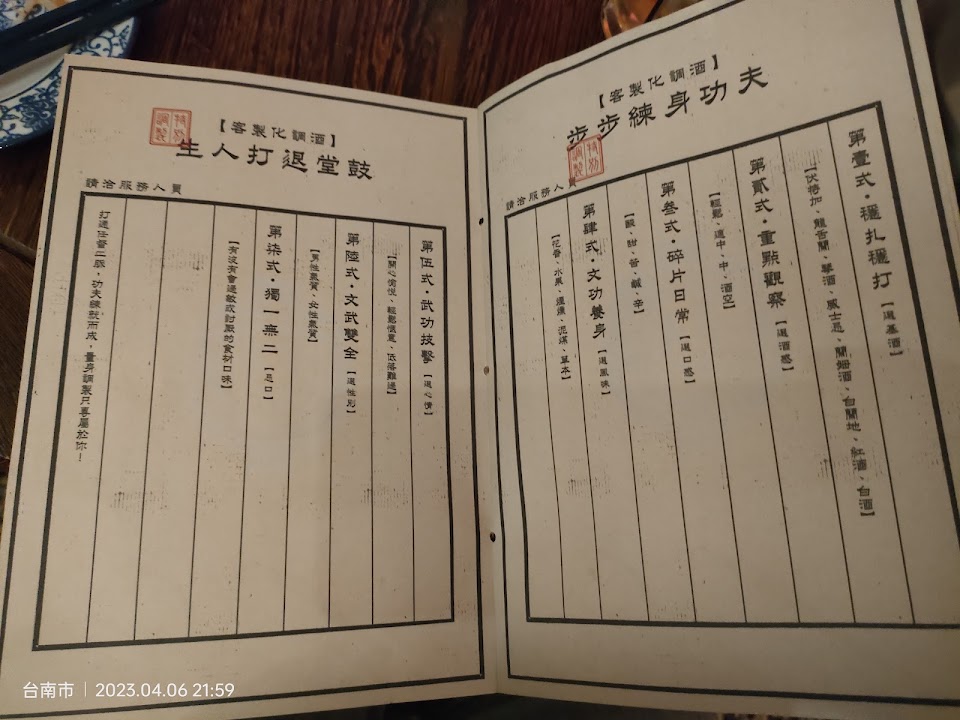 【客製化調酒】
步步練身功夫
特別
調製
請洽服務人員
第壹式．穩扎穩打【選基酒】
【伏特加、龍舌蘭、琴酒、威士忌、蘭姆酒、白蘭地、紅酒、白酒】
第貳式．重點觀察【選酒感】
【輕鬆、適中、中、酒空】
第叁式．碎片日常【選口感】
【酸、甜、苦、鹹、辛】
第肆式．文功養身【選風味】
【花香、水果、煙燻、泥煤、草本】
【客製化調酒】
生人打退堂鼓
特別
調製
請洽服務人員
第伍式．武功技擊【選心情】
【開心愉悅、輕鬆愜意、低落難過】
第陸式．文武雙全【選性別】
【男性氣質、女性氣質】
第柒式．獨一無二【忌口】
【有沒有會過敏或討厭的食材口味】
打通任督二脈，功夫練就而成，量身調製只專屬於你！
台南市｜2023.04.06 21:59